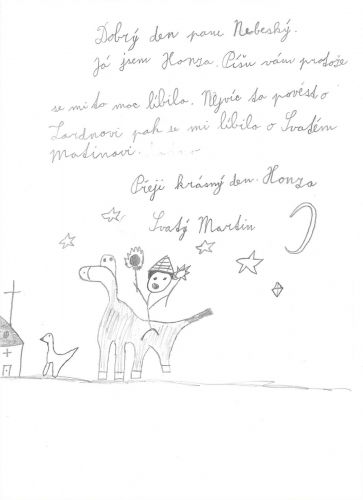 Dobrý den pane Nebeský.
Já jsem Honza. Píšu vám protože
se mi to moc líbilo. Nejvíc ta pověst o
pak se mi líbila o Svatém
Matinovi.
Přeji krásný den. Honza
Svatý Martin